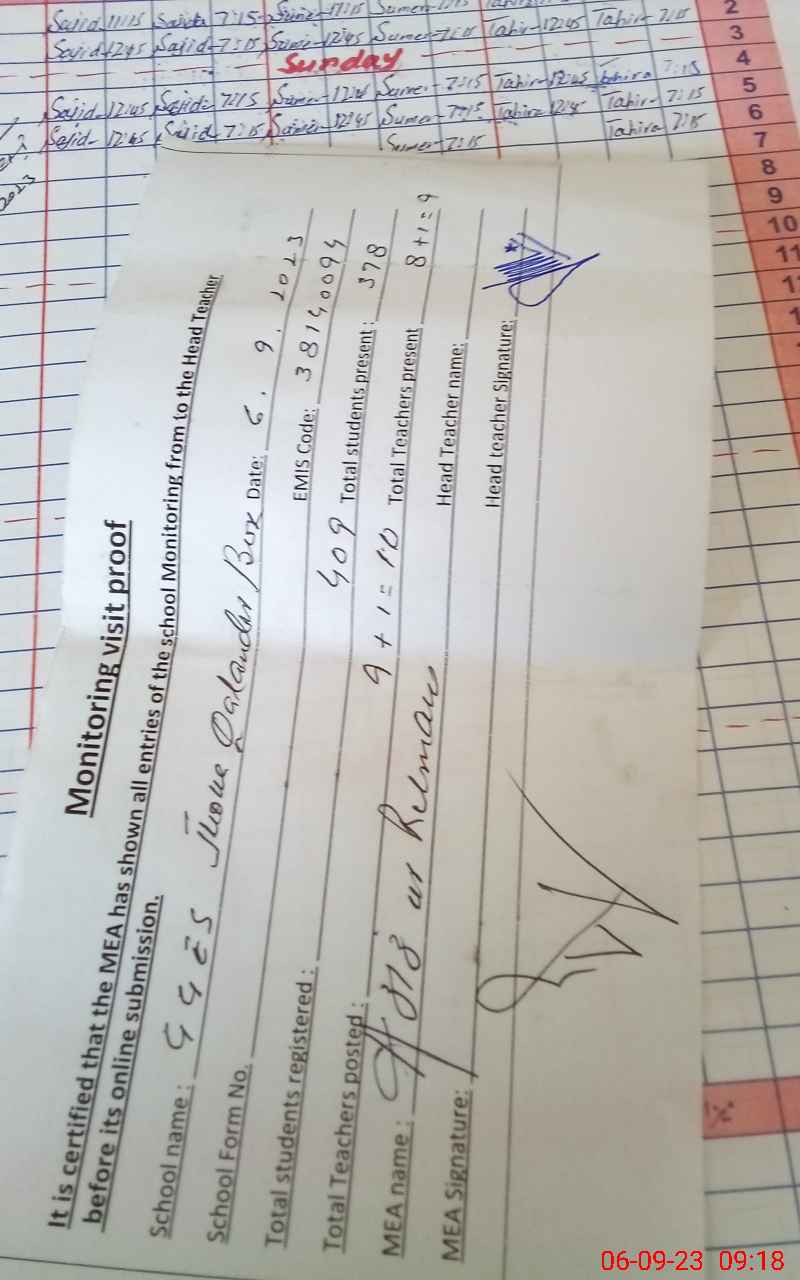 Sajid 11:15 Sajida 7:15 Sumer 11:15 Sumer Tahir 12:45 Tahira 7:15
Sajid 12:45 Sajid 7:15 Sumer 12:45 Sumer 7:15 Tahir 12:45 Tahir 7:15
Sunday
Sajid 12:45 Sajid 7:15 Sumer Sumer 7:15 Tahir 12:45 Tahira 7:15
Sajid 12:45 Sajid 7:15 Sumer 12:45 Sumer 7:15 Tahira Tahir 7:15
Sumer 7:15 Tahira 7:15
2023
2
3
4
5
6
7
8
9
10
11
Monitoring visit proof
It is certified that the MEA has shown all entries of the school Monitoring from to the Head Teacher
before its online submission.
School name : GGES Qalander Bux Date: 6. 9. 2023
School Form No. EMIS Code: 38140094
Total students registered : 409 Total students present : 378
Total Teachers posted : 9 + 1 = 10 Total Teachers present 8+1=9
MEA name : ur Rehman Head Teacher name:
MEA Signature: Head teacher Signature:
06-09-23 09:18